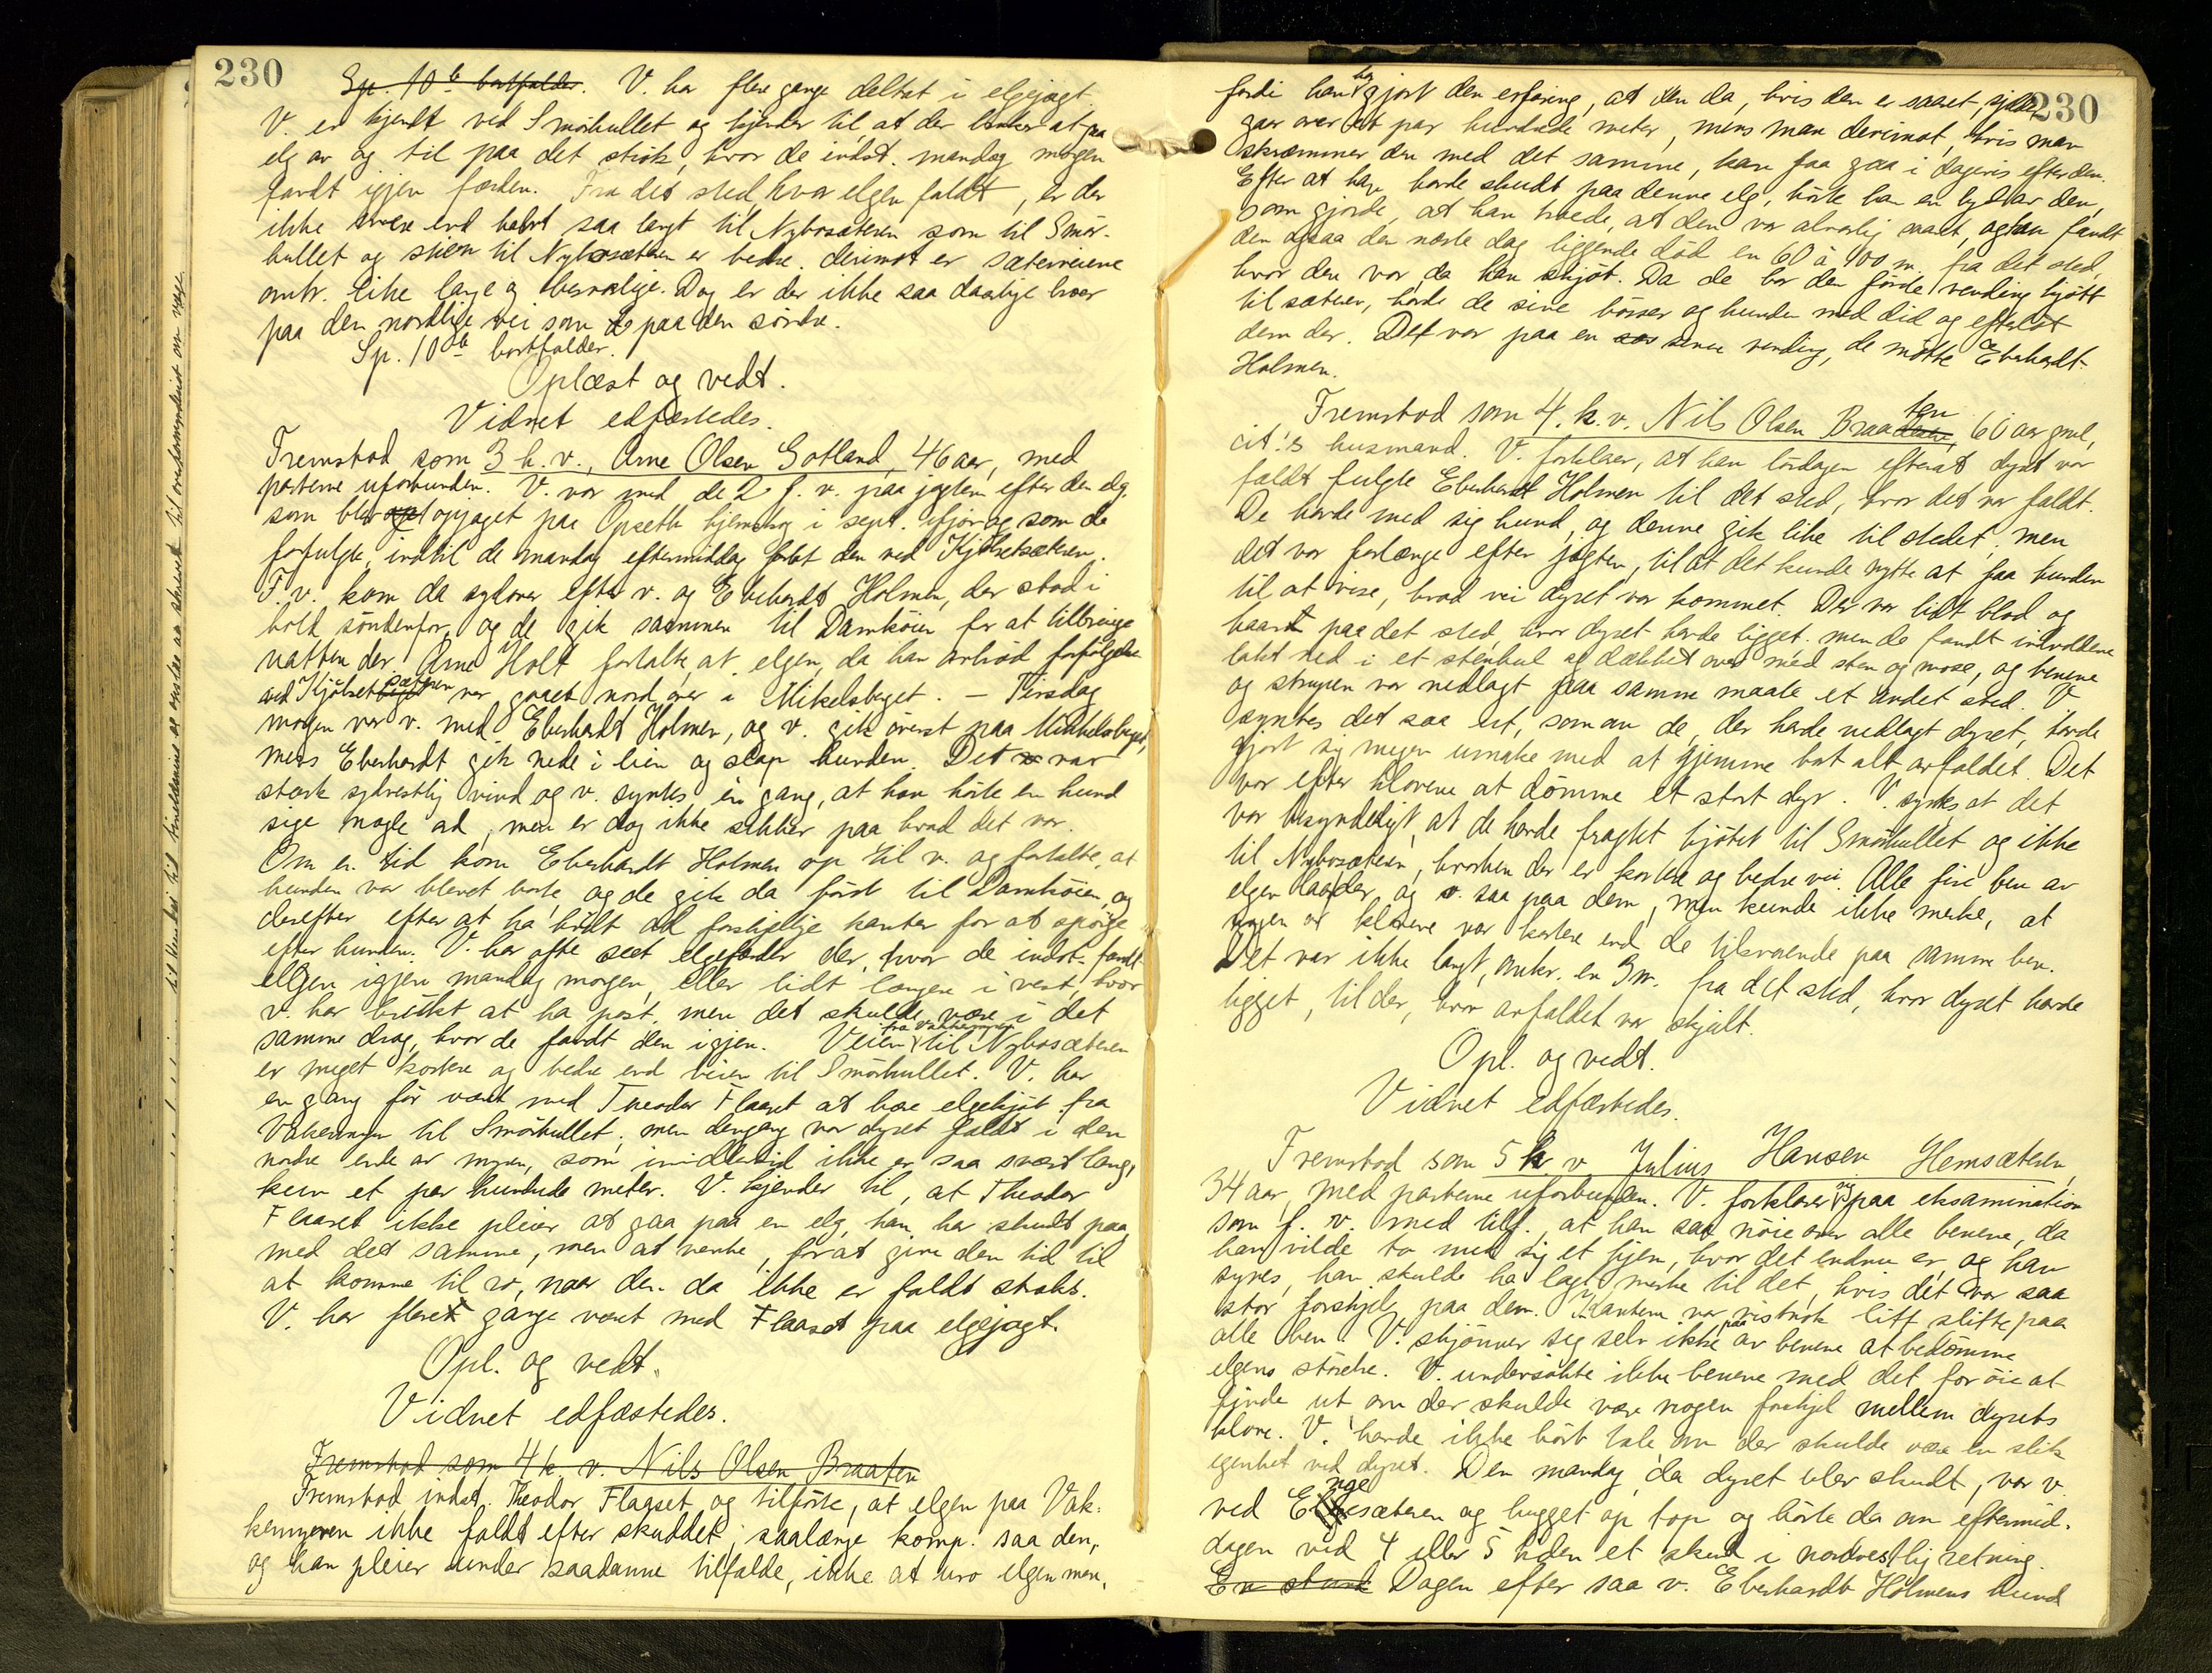 230
Sp. 10 b bortfalder. V. har flere gange deltat i elgejagt.
V. er kjendt ved Smörhullet og kjender til, at der
elg av og til paa det strök, hvor de indst. mandag morgen
fandt igjen færden. Fra det sted, hvor elgen faldt, er der
ikke mere end halvt saa langt til Nybosæteren som til Smör-
hullet og stien til Nybosæteren er bedre. derimot er sæterveiene
omtr. like lange og besværlige. Dog er der ikke saa daarlige
paa den nordlige vei som paa den söndre.
Sp. 10 b bortfalder.
Oplæst og vedt.
Vidnet edfæstedes.
Fremstod som 3 k. v., Arne Olsen Gotland, 46 aar, med
parterne uforbunden. V. var med de 2 f. v. paa jagten efter den elg,
som blev opjaget paa Opseth hjemskog i sept. ifjor og som de
forfulgte, indtil de mandag eftermiddag forlot den ved Kjölsetsæteren.
F. v. kom da sydover efter v. og Eberhardt Holmen, der stod i
hold söndenfor, og de gik sammen til Damköien for at tilbringe
natten der. Arne Holt fortalte, at elgen, da han avbröd forfölgelsen
ved Kjölsetsæteren var gaaet nord over i Mikelsberget. – Tirsdag
morgen var v. med Eberhardt Holmen, og v. gik överst paa Mikkelsberget,
mens Eberhardt gik nede i lien og slap hunden. Det var
stærk sydvestlig vind og v. syntes en gang, at han hörte en hund
sige nogle ord, men er dog ikke sikker paa hvad det var.
Om en tid kom Eberhardt Holmen op til v. og fortalte, at
hunden var blevet borte, og de gik da först til Damköien, og
derefter efter at ha hvilt ad forskjellige kanter for at spörge
efter hunden. V. har ofte seet elgefærder der, hvor de indst. fandt
elgen igjen mandag morgen, eller lidt længere i vest, hvor
v. har brukt at ha post, men det skulde være i det
samme drag, hvor de fandt den igjen. Veien fra Vakkermyren til Nybosæteren
er meget kortere og bedre end veien til Smörhullet. V. har
en gang för været med Theodor Flaaset at bære elgekjöt fra
Vakermyren til Smörhullet; men dengang var dyret faldt i den
nedre ende av myren, som imidlertid ikke er saa svært lang,
kun et par hundrede meter. V. kjender til, at Theodor
Flaaset ikke pleier at gaa paa en elg, han har skudt paa
med det samme, men at vente, for at give den tid til
at komme til ro, naar den da ikke er faldt straks.
V. har flere gange været med Flaaset paa elgejagt.
Opl. og vedt.
Vidnet edfæstedes.
Fremstod som 4 k. v. Nils Olsen Braaten
Fremstod indst. Theodor Flaaset, og tilförte, at elgen paa Vak-
kermyren ikke faldt efter skuddet, saalænge komp. saa den,
og han pleier under saadanne tilfælde, ikke at uro elgen mere,
230
fordi han har gjort den erfaring, at den da, hvis den er saaret, ikke
gaar over et par hundrede meter, mens man derimot, hvis man
skræmmer den med det samme, kan faa gaa i dagevis efter den.
Efter at han havde skudt paa denne elg, hörte han en lyd av den,
som gjorde, at han troede, at den var alvorlig saaret, og han fandt
den ogsaa den næste dag liggende död en 60 à 100 m. fra det sted,
hvor den var, da han skjöt. Da de bar den förste vending kjött
til sæteren, havde de sine börser og hunden med did og efterlot
dem der. Det var paa en senere vending, de mötte Eberhardt
Holmen.
Fremstod som 4. k. v. Nils Olsen Braaten, 60 aar gml,
cit.'s husmand. V. forklarer, at han lördagen efterat dyret var
faldt fulgte Eberhardt Holmen til det sted, hvor det var faldt.
De havde med sig hund, og denne gik like til stedet, men
det var forlænge efter jagten, til at det kunde nytte at faa hunden
til at vise, hvad vei dyret var kommet. Der var lidt blod og
haar paa det sted, hvor dyret havde ligget. men de fandt indvoldene
lakt ned i et stenhul og dækket over med sten og mose, og benene
og strupen var nedlagt paa samme maate et andet sted. V.
syntes det saa ut, som om de, der havde nedlagt dyret, havde
gjort sig megen umake med at gjemme bort alt avfaldet. Det
var efter klovene at dömme et stort dyr. V. synes at det
var besynderligt, at de havde fragtet kjötet til Smörhullet og ikke
til Nybosæteren, hvorhen der er kortere og bedre vei. Alle fire ben av
elgen laa der, og v. saa paa dem, men kunde ikke merke, at
nogen av klovene var kortere end de tilsvarende paa samme ben.
Det var ikke langt, omtr. en 3 m. fra det sted, hvor dyret havde
ligget, til der, hvor avfaldet var skjult.
Opl. og vedt.
Vidnet edfæstedes.
Fremstod som 5 k v Julius Hansen Hemsæteren,
34 aar, med parterne uforbunden. V. forklarer og paa eksamination
som f. v. med tilf., at han saa nöie over alle benene, da
han vilde ta med sig et hjem, hvor det endnu er, og han
synes, han skulde ha lagt merke til det, hvis det var saa
stor forskjel paa dem. Kantene var vistnok litt slitte paa
alle ben. V. skjönner sig selv ikke paa av benene at bedömme
elgens störrelse. V. undersökte ikke benene med det for öie at
finde ut om der skulde være nogen forskjel mellem dyrets
klove. V. havde ikke hört tale om der skulde være en slik
egenhet ved dyret. Den mandag da dyret blev skudt, var v.
ved sæteren og hugget op top og hörte da om eftermid-
dagen ved 4 eller 5 tiden et skud i nordvestlig retning.
Dagen efter saa v. Eberhardt Holmens hund